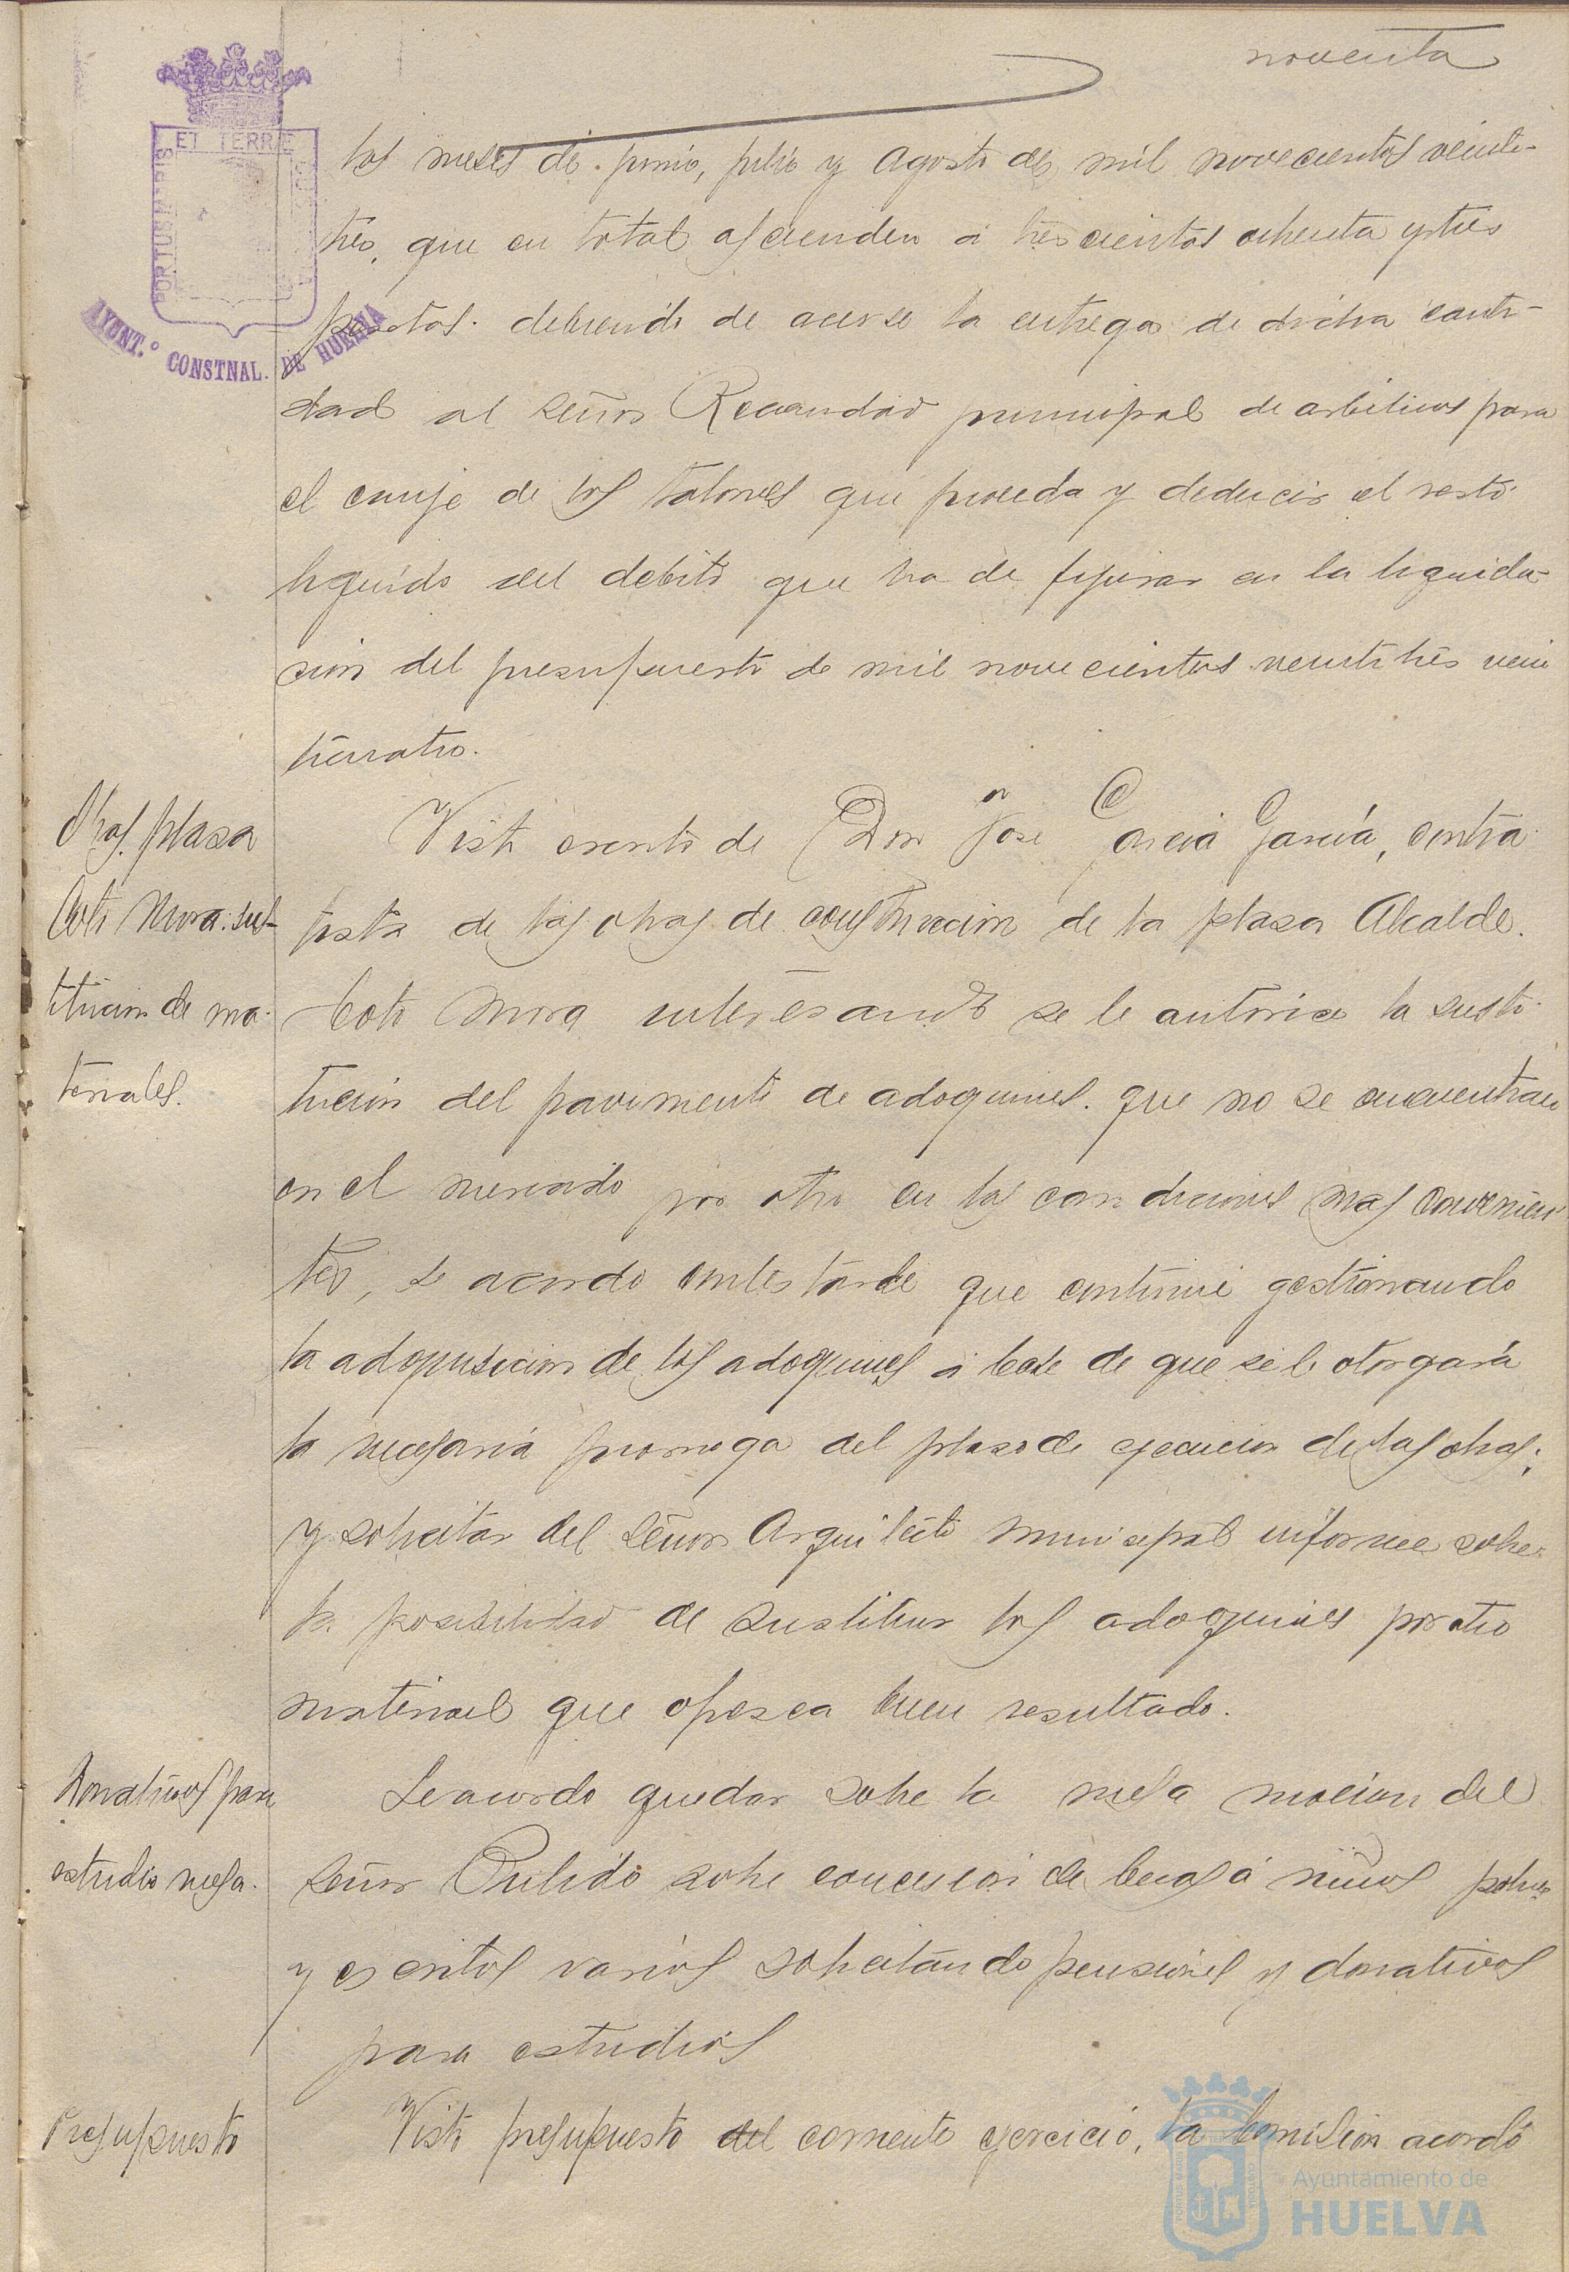 noventa
los meses de junio, julio y Agosto de mil novecientos veinti-
tres, que en total ascienden a trescientas ochenta y tres
pesetas debiendo de acerse la entrega de dicha canti-
dad al señor Recaudador municipal de arbitrios para
el canje de los talones que proceda y deducir el resto
liquido del debito que ha de figurar en la liquida-
cion del presupuesto de mil novecientos veintitres vein
ticuatro.
Obras plasa
Coto Mora: sus-
titucion de ma-
teriales.
Visto escrito de Don Jose Garcia García, contra-
tista de las obras de construccion de la plasa Alcalde
Coto Mora interesando se le autorice la susti-
tucion del pavimento de adoquines que no se encuentran
en el mercado por otro en las condiciones mas convenien-
tes, se acordo contestarle que continue gestionando
la adquisicion de los adoquines a base de que se le otorgará
la necesaria prorroga del plaso de ejecucion de las obras;
y solicitar del señor Arquitecto municipal informe sobre
la posibilidad de sustituir los adoquines por otro
material que ofresca buen resultado.
Donativos para
estudio mesa.
Se acordo quedar sobre la mesa mocion del
señor Pulido sobre concesion de becas á niños pobres
y escritos varios solicitando pensiones y donativos
para estudios
Presupuesto
Visto presupuesto del corriente ejercicio, la Comision acordó
ET TERRÆ
PORTUS MARIS
AYUNT.º CONSTNAL. DE HUELVA
Ayuntamiento de
HUELVA